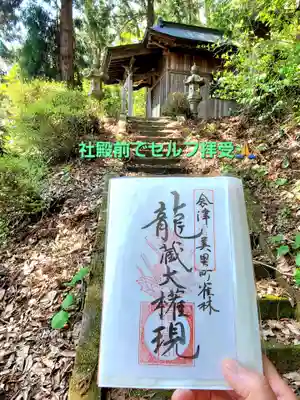 社殿前でセルフ拝受🙏
会津美里町雀林
龍蔵大権現